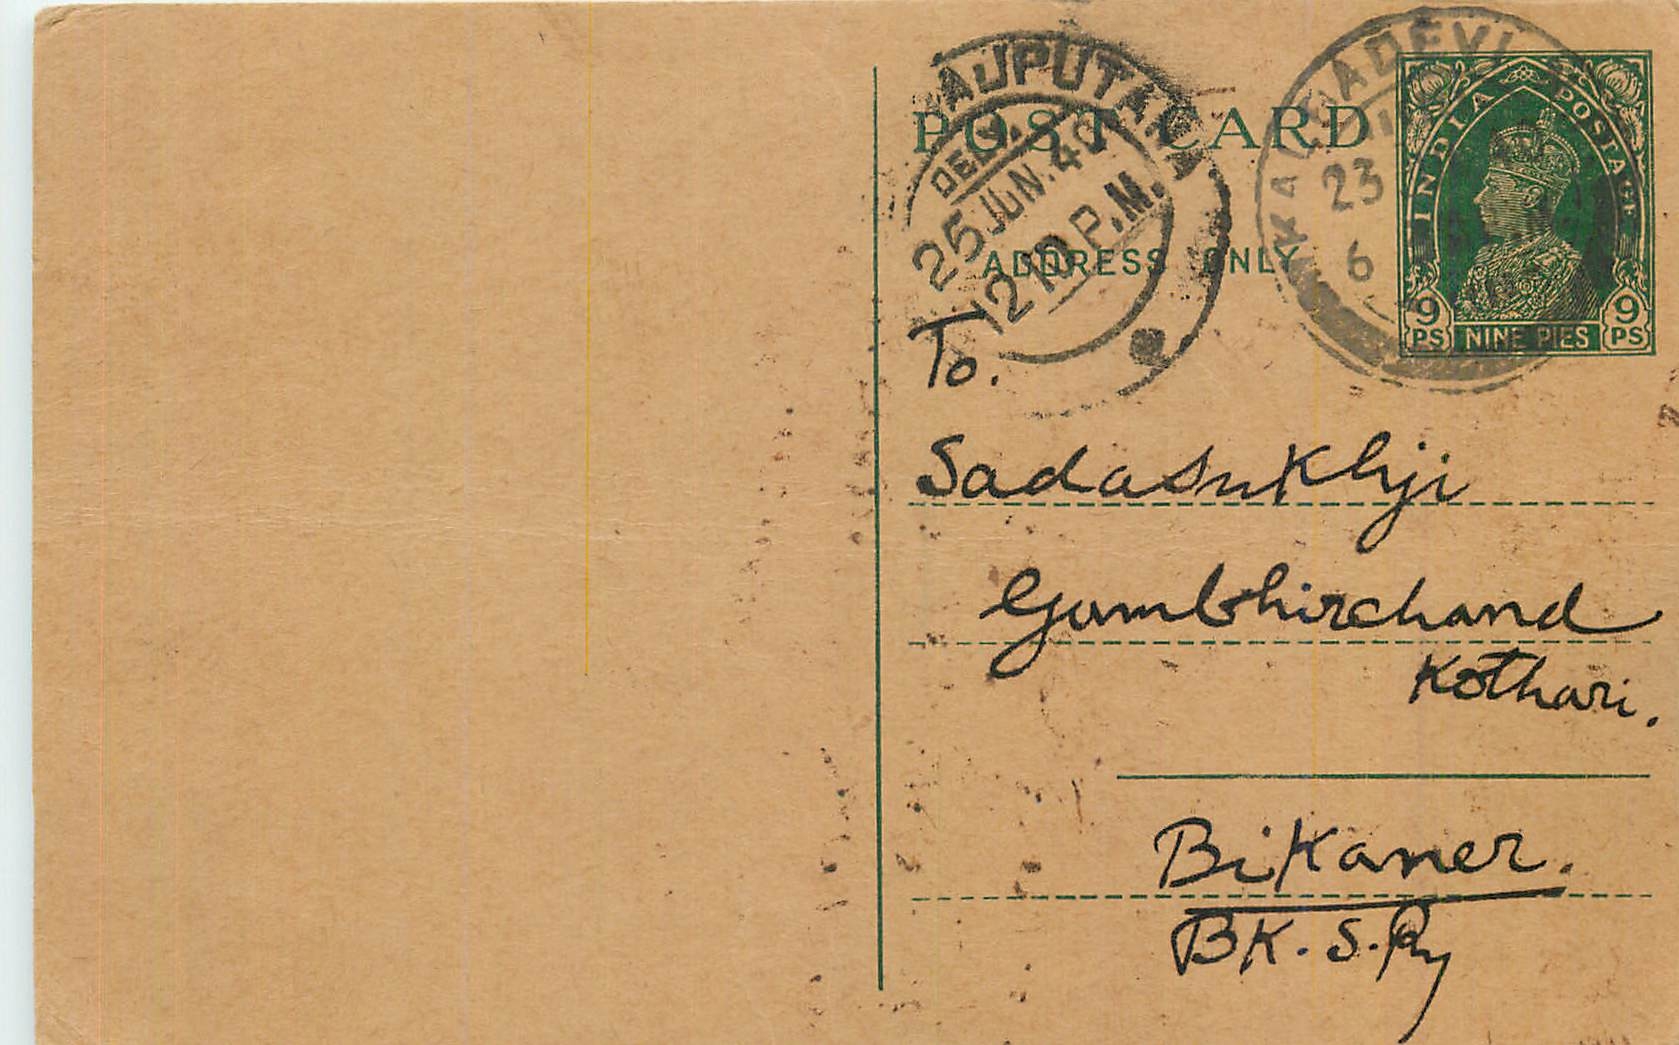 POST CARD
ADDRESS ONLY
RAJPUTANA
DELY.
25 JUN. 40
12 10 P.M.
KALBADEVI
23
6
INDIA POSTAGE
9 PS
NINE PIES
9 PS
To.
Sadasukhji
Gambhirchand
Kothari.
Bikaner.
BK. S. Ry